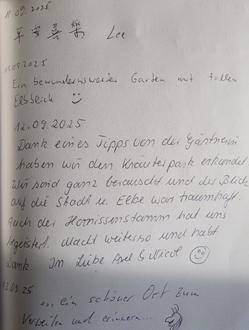 11.09.2025
平安喜樂 Lee
11.09.2025
Ein bewundernswerter Garten mit tollem
Elbblick
12.09.2025
Dank eines Tipps von der Gärtnerin
haben wir den Kräuterpark erkundet
Wir sind ganz berauscht und der Blick
auf die Stadt u. Elbe war traumhaft.
Auch der Hornissenstamm hat uns
begeistert. Macht weiter so und habt
Dank. In Liebe Axel & Nicol
13.09.25
... ein schöner Ort zum
Verweilen und erinnern...